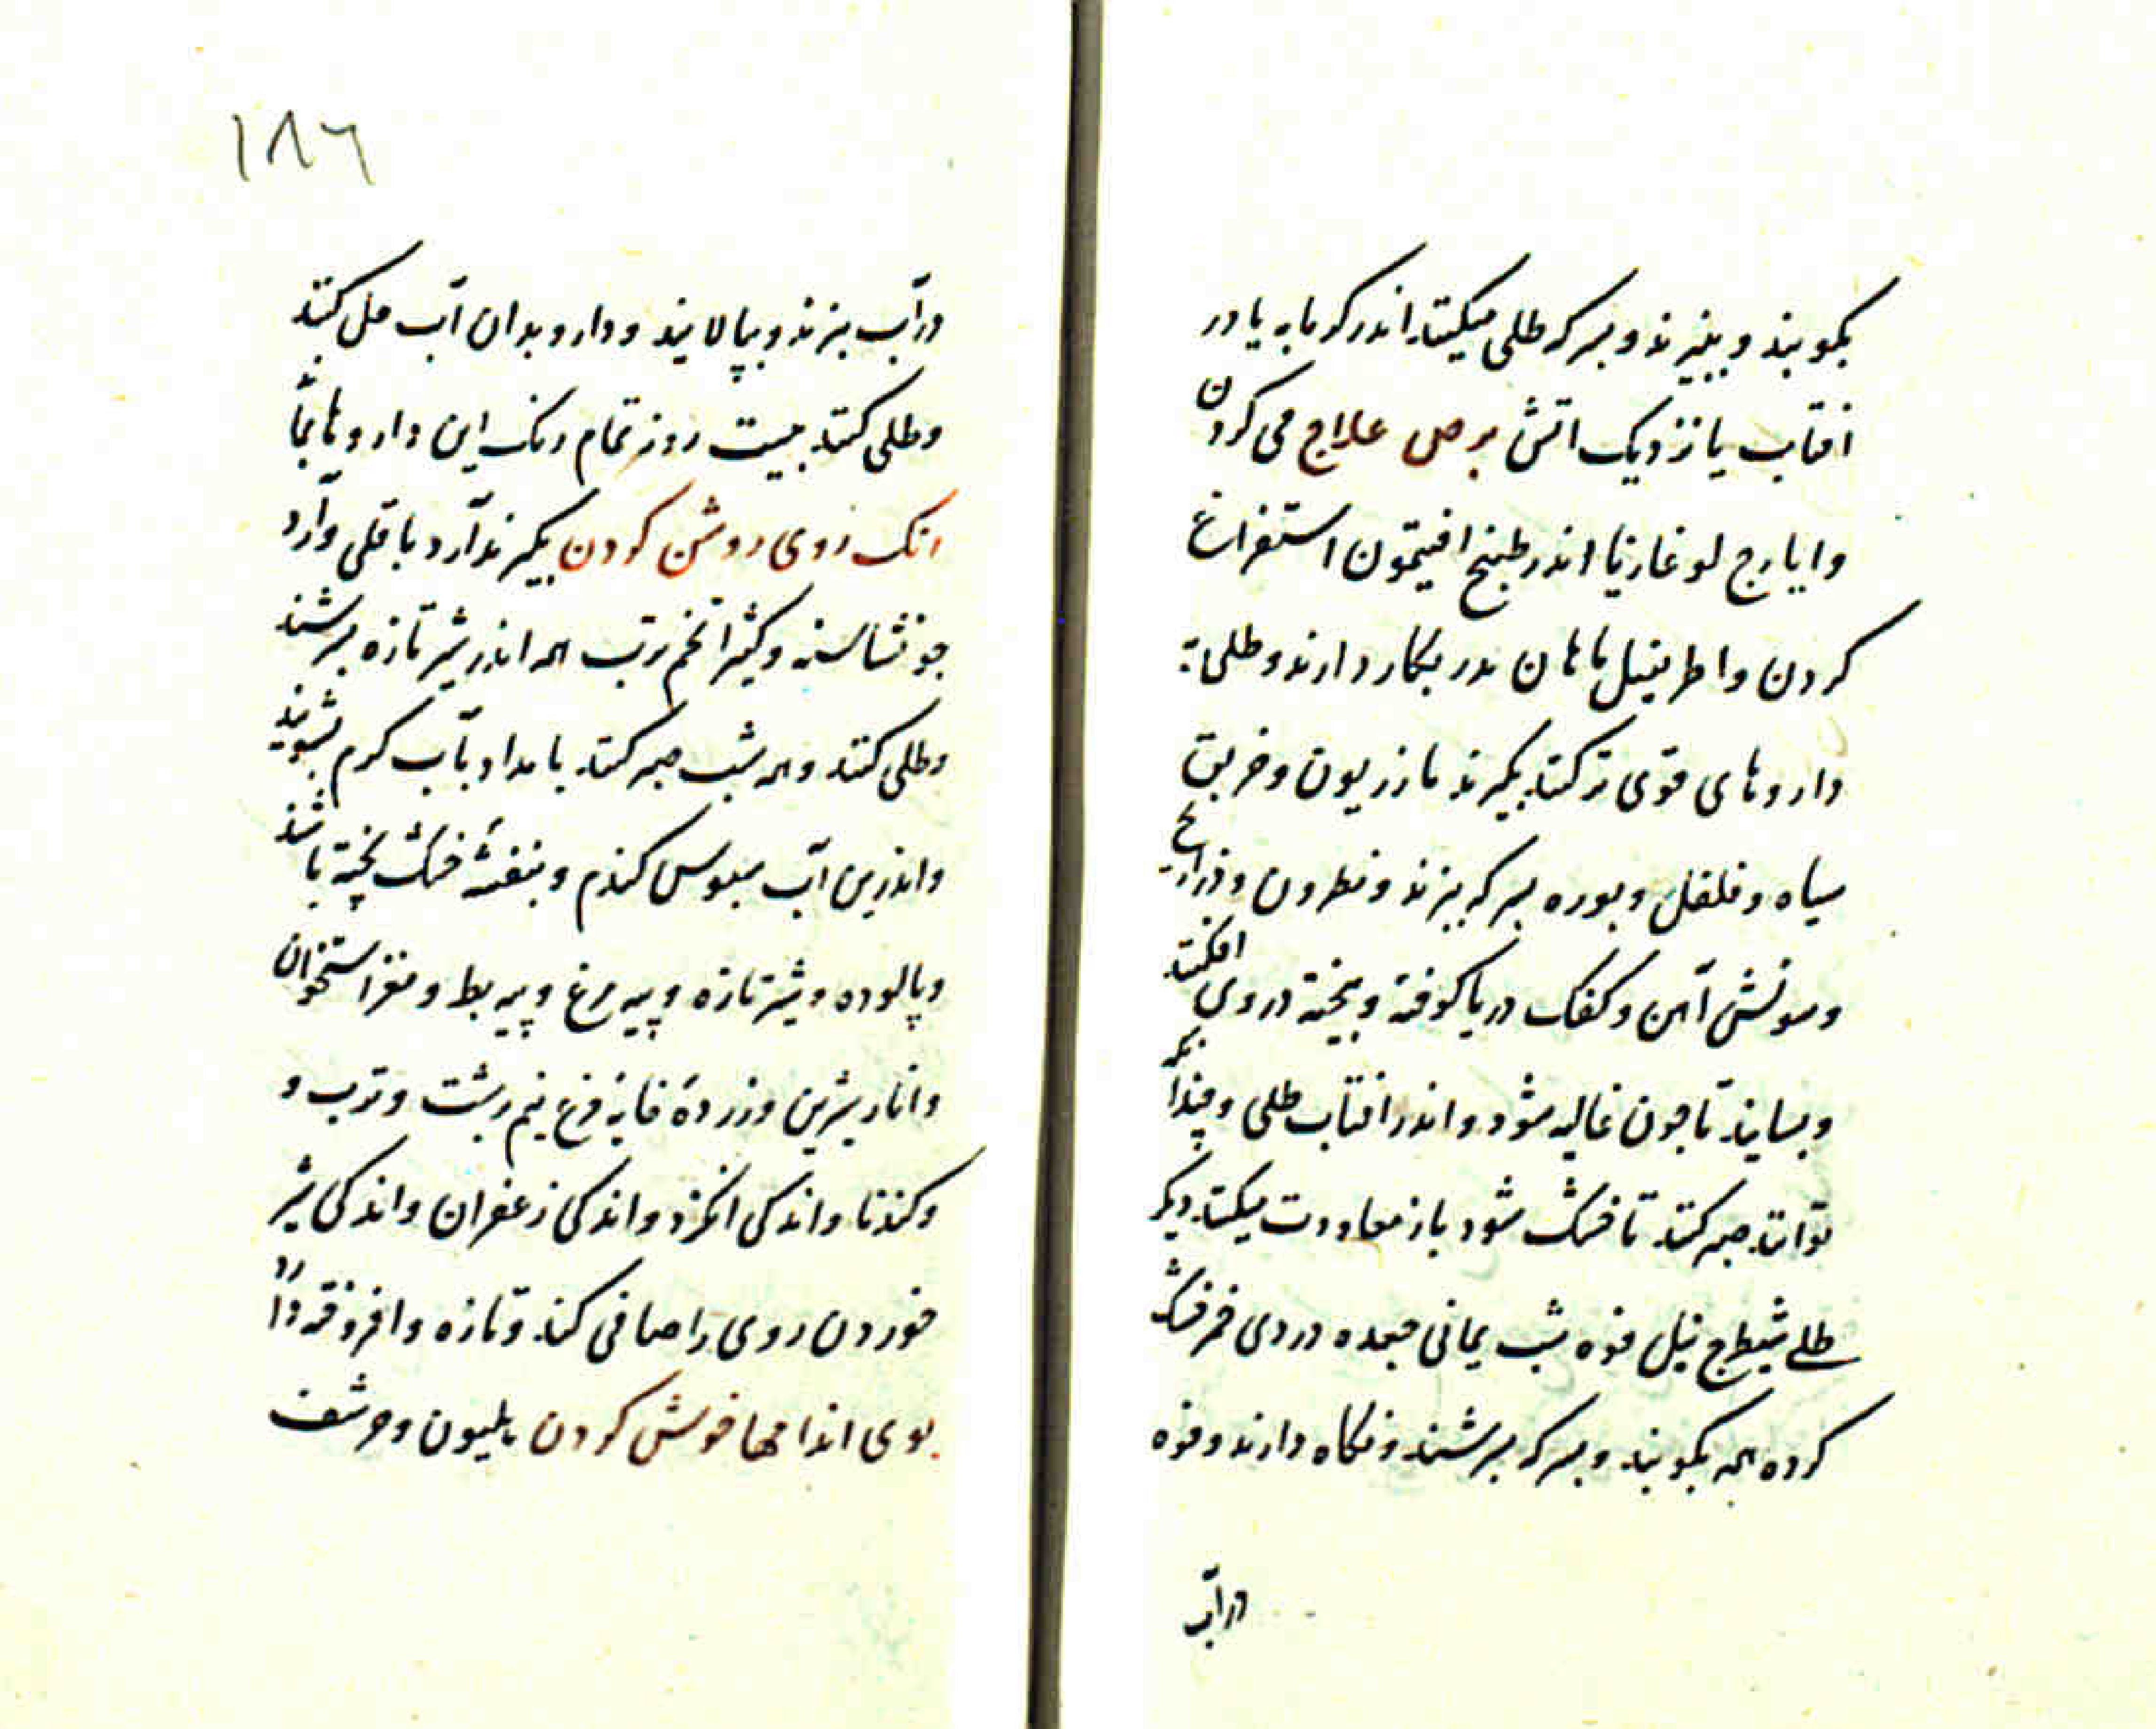 بکوبند و ببیزند و بسرکه طلی میکنند اندر کرمابه یا در
افتاب یا نزدیک اتش برص علاج می کردن
وایارج لوغاریا اندر طبیخ افیتمون استفراغ
کردن واطریفیل بکار دارند وطلی
داروهای قوی تر کنند بکیرند مازریون وخربق
سیاه وفلفل وبوره بسرکه بپزند ونطرون وذراریح
وسونش آهن وکفک دریا کوفته وبیخته در وی افکنند
وبسایند تا جون غالیه شود واندر افتاب طلی وچندانکه
توانند صبر کنند تا خشک شود باز معاودت میکنند دیکر
طلی شیطرج نیل فوه شب یمانی دردی خمر خشک
کرده همه بکوبند وبسرکه بسرشند ونکاه دارند وفوه
درآب
۱۸۶
درآب بپزند وبپالایند ودارو بدان آب حل کنند
وطلی کنند بیست روز تمام رنک این داروها بماند
انک روی روشن کردن بکیرند آرد باقلی وآرد
جو نشاسته وکثیرا تخم ترب همه اندر شیر تازه بسرشند
وطلی کنند وهمه شب صبر کنند بامداد بآب کرم بشویند
واندرین آب سبوس کندم وبنفشه خشک پخته باشند
وپالوده وشیر تازه وپیه مرغ وپیه بط ومغز استخوان
وانار شیرین وزردهٔ خایه مرغ نیم برشت وترب و
وکندنا واندکی انکزد واندکی زعفران واندکی شیر
خوردن روی را صافی کند وتازه وافروخته دارد
بوی اندامها خوش کردن هلیون وحرشف